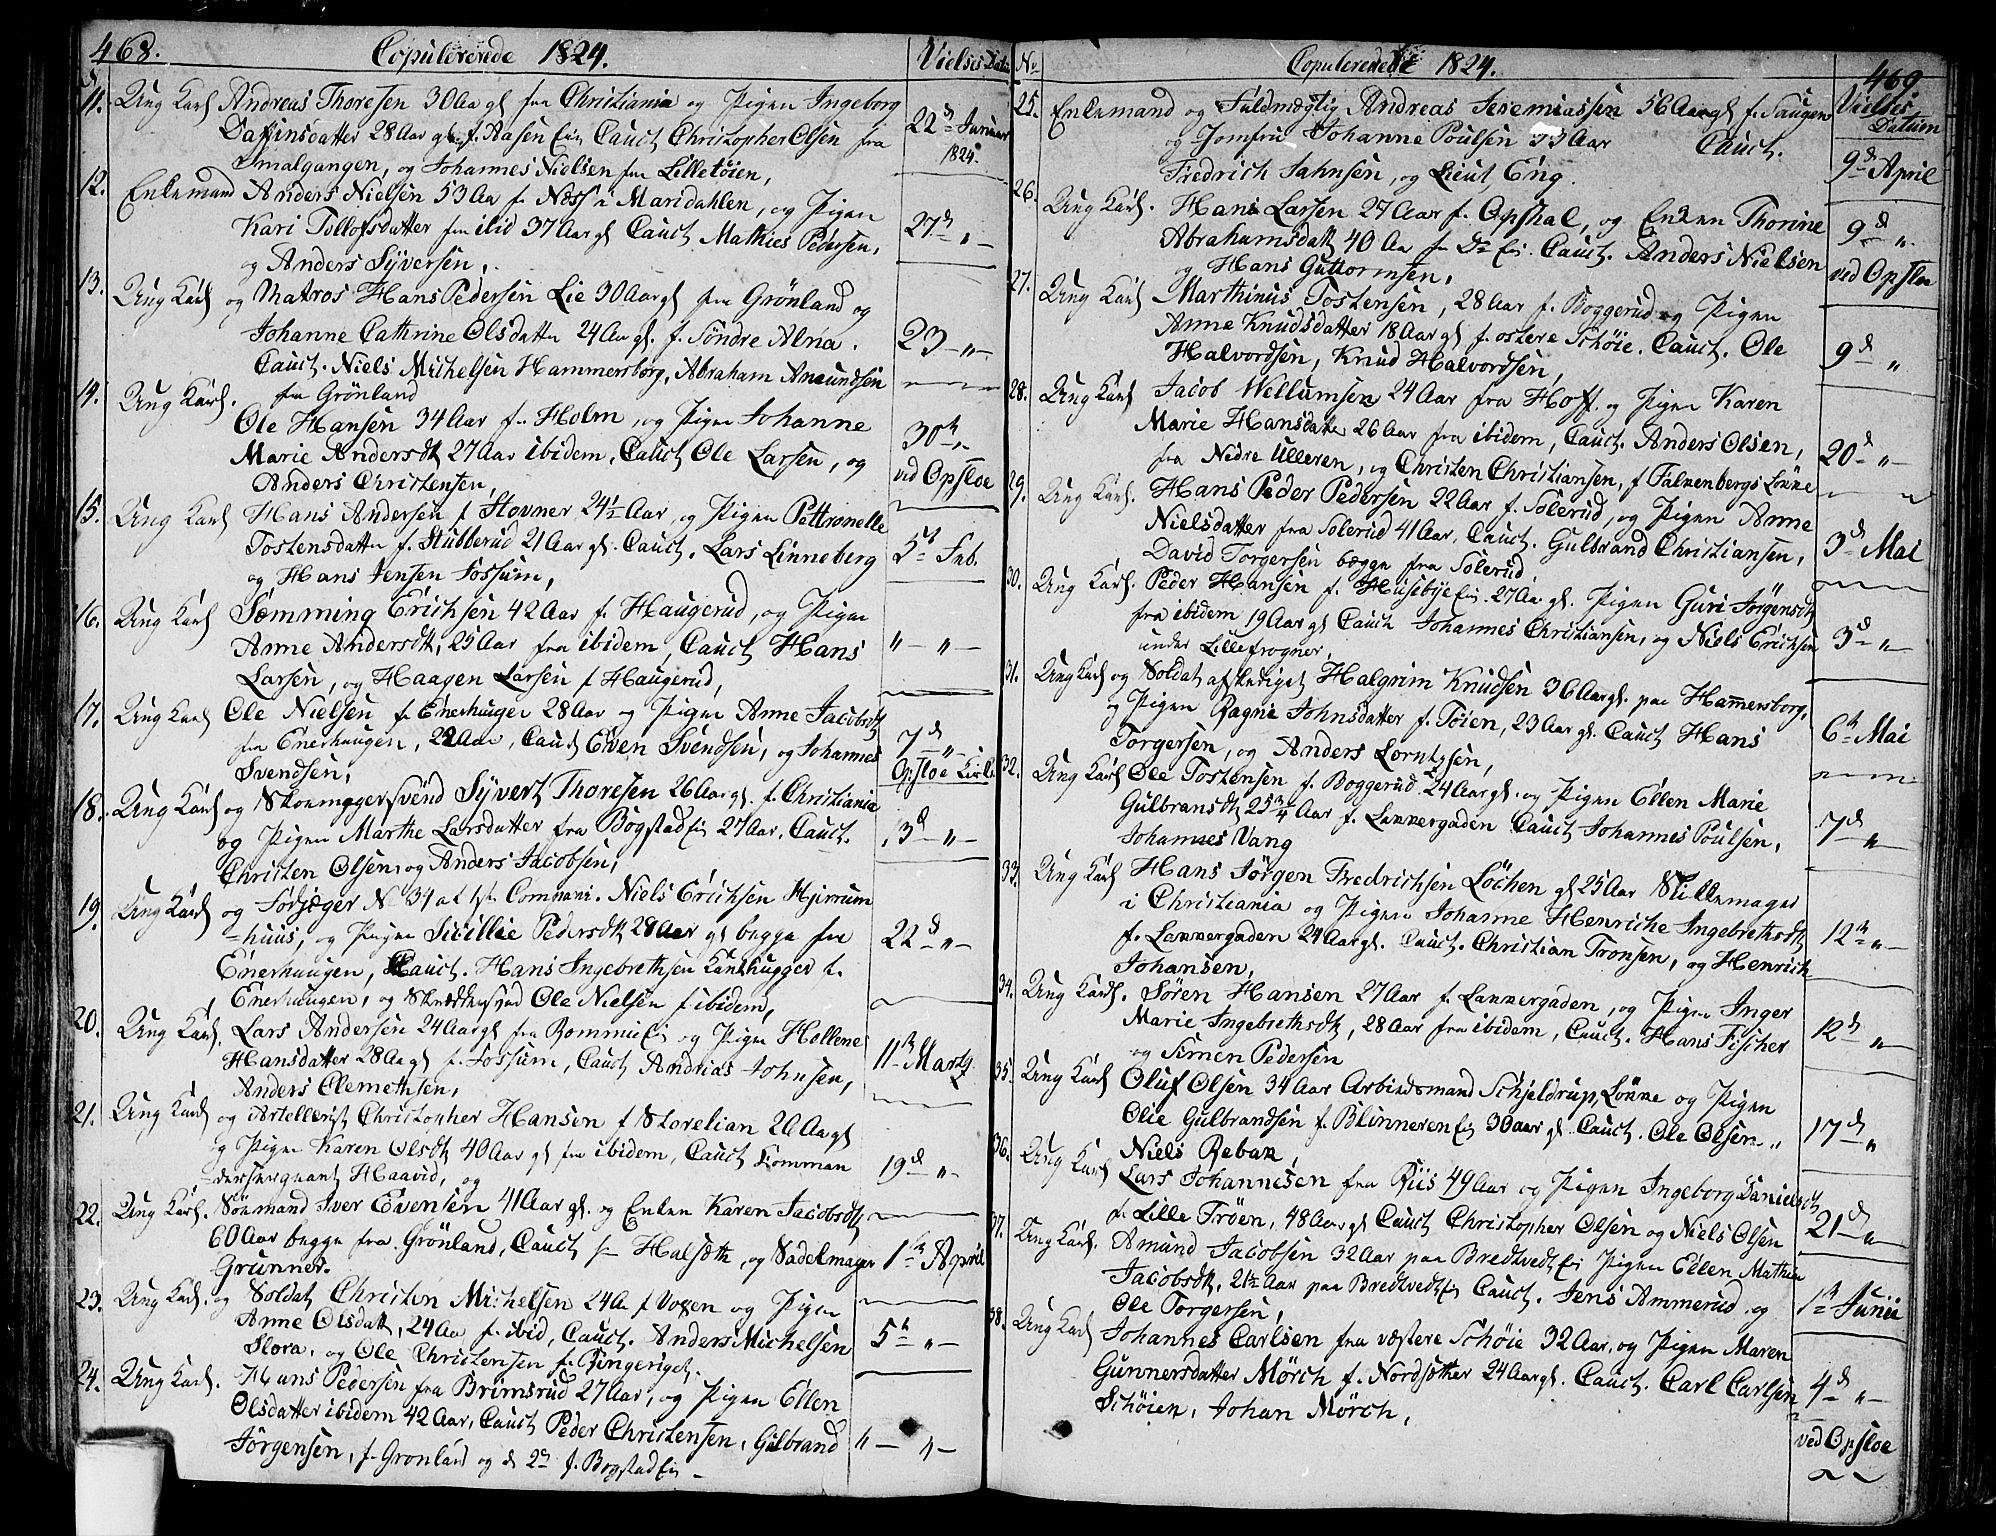 468. Copulererede 1824. Vielses Datum
11. Ung Karl Andreas Thoresen 30 Aa gl fra Christiania og Pigen Ingeborg
Daffinsdatter 28 Aar gl f. Aasen Eie Cauct Christopher Olsen fra 22d Januar
Smalgangen, og Johannes Nielsen fra Lilletöien, 1824.
12. Enkemand Anders Nielsen 53 Aa f. Næss i Maridahlen, og Pigen
Kari Tollofsdatter fra ibid 37 Aar gl Cauct Mathies Pedersen, 27d " —
og Anders Syversen,
13. Ung Karl og Matros Hans Pedersen Lie 30 Aar gl fra Grönland og
Johanne Cathrine Olsdatter 24 Aa gl. f. Söndre Alna.
Cauct. Niels Michelsen Hammersborg, Abraham Amundsen 23 — " —
fra Grönland
14. Ung Karl. Ole Hansen 34 Aar f. Holm, og Pigen Johanne
Marie Andersdtr 27 Aar ibidem, Cauct Ole Larsen, og 30te "
Anders Christensen, ved Opsloe
15. Ung Karl Hans Andersen f Stovner 24½ Aar, og Pigen Pettronelle
Tostensdatter f. Stubberud 21 Aar gl. Cauct. Lars Linneberg 5te Feb.
og Hans Jensen Fossum,
16. Ung Karl Semming Erichsen 42 Aar f. Haugerud, og Pigen
Anne Andersdtr, 25 Aar fra ibidem, Cauct Hans " — " —
Larsen, og Haagen Larsen f Haugerud,
17. Ung Karl Ole Nielsen f. Enerhugen 28 Aar og Pigen Anne Jacobsdtr
fra Enerhaugen, 22 Aar, Cauct Even Svendsen, og Johannes 7d "
Svendsen, Opsloe Kirke
18. Ung Karl og Skomagersvend Syvert Thoresen 26 Aar gl. f. Christiania
og Pigen Marthe Larsdatter fra Bogstad Eie 27 Aar. Cauct. 13d " —
Christen Olsen, og Anders Jacobsen,
19. Ung Karl og Fodjæger No 34 af 1ste Compani. Niels Erichsen Hjerrum
=huus, og Pigen Sicillie Pedersdtr 28 Aar gl begge fra 22d " —
Enerhaugen, Cauct. Hans Ingebrethsen f.
Enerhaugen, og Ole Nielsen f ibidem,
20. Ung Karl. Lars Andersen 24 Aar gl fra Bommen Eie og Pigen Hollene
Hansdatter 28 Aa gl f. Fossum, Cauct Andreas Johnsen, 11te Marty
Anders Clemethsen,
21. Ung Karl og Artellerist Christopher Hansen f Storelian 20 Aa gl
og Pigen Karen Olsdtr 40 Aar gl fra ibidem, Cauct Komman
=dersergeant Haavid, og 19d " —
22. Ung Karl. Sömand Iver Evensen 41 Aar gl. og Enken Karen Jacobsdtr
60 Aar begge fra Grönland, Cauct Halseth, og Sadelmager 1ste April
Grunner.
23. Ung Karl. og Soldat Christen Michelsen 24 Aa f Voxen og Pigen
Anne Olsdatt, 24 Aa f. ibid, Cauct. Anders Michelsen 5te " —
Slora, og Ole Christensen f. Ringeriget.
24. Ung Karl. Hans Pedersen fra Brimsrud 27 Aar, og Pigen Ellen
Olsdatter ibidem 42 Aar, Cauct Peder Christensen, Gulbrand " — " —
Jörgensen, f. Gronland og d 2n f. Bogstad Eie —
No Copulererede 1824. 469
Vielses Datum
25. Enkemand og Fuldmægtig Andreas Jeremiassen 56 Aar gl f. Haugen
og Jomfru Johanne Poulsen 53 Aar Cauct. 9d April
Fredrich Jahnsen, og Lieut Eng.
26. Ung Karl. Hans Larsen 27 Aar f. Opshal, og Enken Thorine
Abrahamsdatt 40 Aa fra Do Eie. Cauct. Anders Nielsen 9d "
og Hans Guttormsen, ved Opsloe
27. Ung Karl Marthinus Tostensen, 28 Aar f. Boggerud og Pigen
Anne Knudsdatter 18 Aar gl f. ostere Schöie. Cauct. Ole 9d "
Halvordsen, Knud Halvordsen,
28. Ung Karl Jacob Wellumsen 24 Aar fra Hoff. og Pigen Karen
Marie Hansdatter 26 Aar fra ibidem, Cauct. Anders Olsen, 20d " —
fra Nedre Ulleren, og Christen Christiansen, f Falkenbergs Lökke
29. Ung Karl. Hans Peder Pedersen 22 Aar f. Solerud, og Pigen Anne
Nielsdatter fra Solerud 41 Aar, Cauct. Gulbrand Christiansen, 3d Mai
David Torgersen begge fra Solerud,
30. Ung Karl. Peder Hansen f. Husebye Eie. 27 Aa gl. Pigen Guri Jörgensdtr
fra ibidem 19 Aar gl Cauct Johannes Christiansen, og Niels Erichsen 3d " —
under Lillefrogner,
31. Ung Karl og Soldat afskediget Halgrim Knudsen 36 Aar gl. paa Hammersborg,
og Pigen Ragne Johnsdatter f. Töien, 23 Aar gl. Cauct Hans 6te Mai
Torgersen, og Anders Lorntzsen,
32. Ung Karl Ole Tostensen f. Boggerud 24 Aar gl. og Pigen Ellen Marie
Gulbransdtr 25¾ Aar f. Lakkergaden Cauct Johannes Poulsen, 7d " —
Johannes Vang
33. Ung Karl Hans Jörgen Fredrichsen Löchen gl 25 Aar Stillemager
i Christiania og Pigen Johanne Henriche Ingebrethsdtr
f. Lakkergaden 24 Aar gl. Cauct. Christian Tronsen, og Henrich 12te " —
Johansen,
34. Ung Karl. Sören Hansen 27 Aar f. Lakkergaden, og Pigen Inger
Marie Ingebrethsdtr, 28 Aar fra ibidem, Cauct. Hans Fischer 12te "
og Simen Pedersen
35. Ung Karl Oluf Olsen 34 Aar Arbeidsmand Schjeldrups Lökke og Pigen
Olie Gulbrandsen f. Blinneren Eie 30 aar gl. Cauct. Ole Olsen " 17d "
Niels Rebak,
36. Ung Karl Lars Johannesen fra Riis 49 Aar og Pigen Ingeborg Danielsdtr
f. Lille Fröen, 48 Aar gl Cauct Christopher Olsen og Niels Olsen 21d "
37. Ung Karl. Amund Jacobsen 32 Aar paa Bredtvedt Eie Pigen Ellen Mathea
Jacobsdtr, 21½ Aar paa Bredtvedt Eie Cauct. Jens Ammerud og 1te Junii
Ole Torgersen,
38. Ung Karl Johannes Carlsen fra væstere Schöie 32 Aar, og Pigen Maren
Gunnersdatter Mörch f. Nordsother 24 Aar gl. Cauct. Carl Carlsen 4d " —
Schöien, Johan Mörch, ved Opsloe